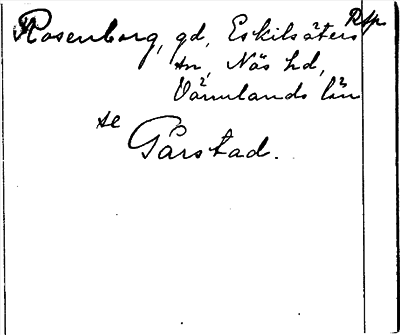 Rosenborg, gd, Eskilsäters
sn, Näs hd,
Värmlands län
se
Gårstad.